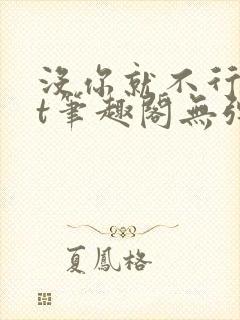 没你就不行
t筆趣閣無弹
夏鳳格